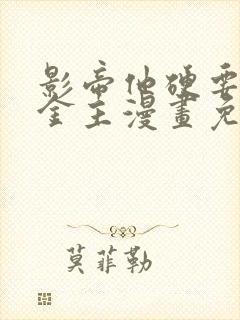 影帝他硬要
金主漫畫免
莫菲勒